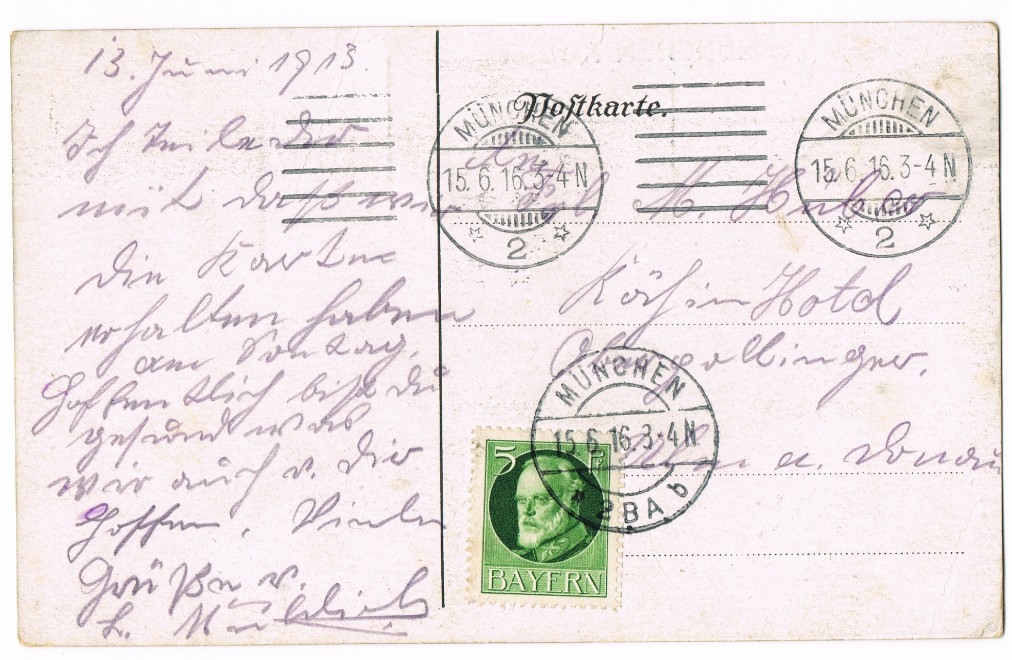 13. Juni 1913.
Ich teile dir
mit daß wir
die Karten
erhalten haben
am Sontag.
Hoffentlich bist du
gesund was
wir auch v. dir
hoffen. Viele
Grüße v.
L.
Postkarte.
MÜNCHEN
15.6.16.3-4N
2
MÜNCHEN
15.6.16.3-4N
2
An
Frl M. Huber
Köchin Hotel
MÜNCHEN
15.6.16.3-4N
* 2BA b
Ulm a. Donau
5 Pf
BAYERN